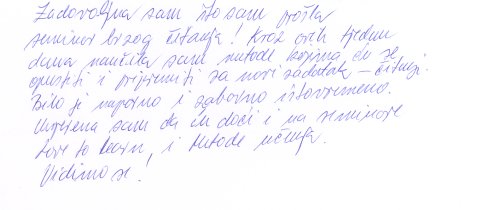 Zadovoljna sam što sam prošla
seminar brzog čitanja! Kroz ovih tjedan
dana naučila sam metode kojima ću se
opustiti i pripremiti za novi zadatak - čitanje.
Bilo je naporno i zabavno istovremeno.
Uvjerena sam da ću doći i na seminare
Love to learn, i Metode učenja.
Vidimo se!